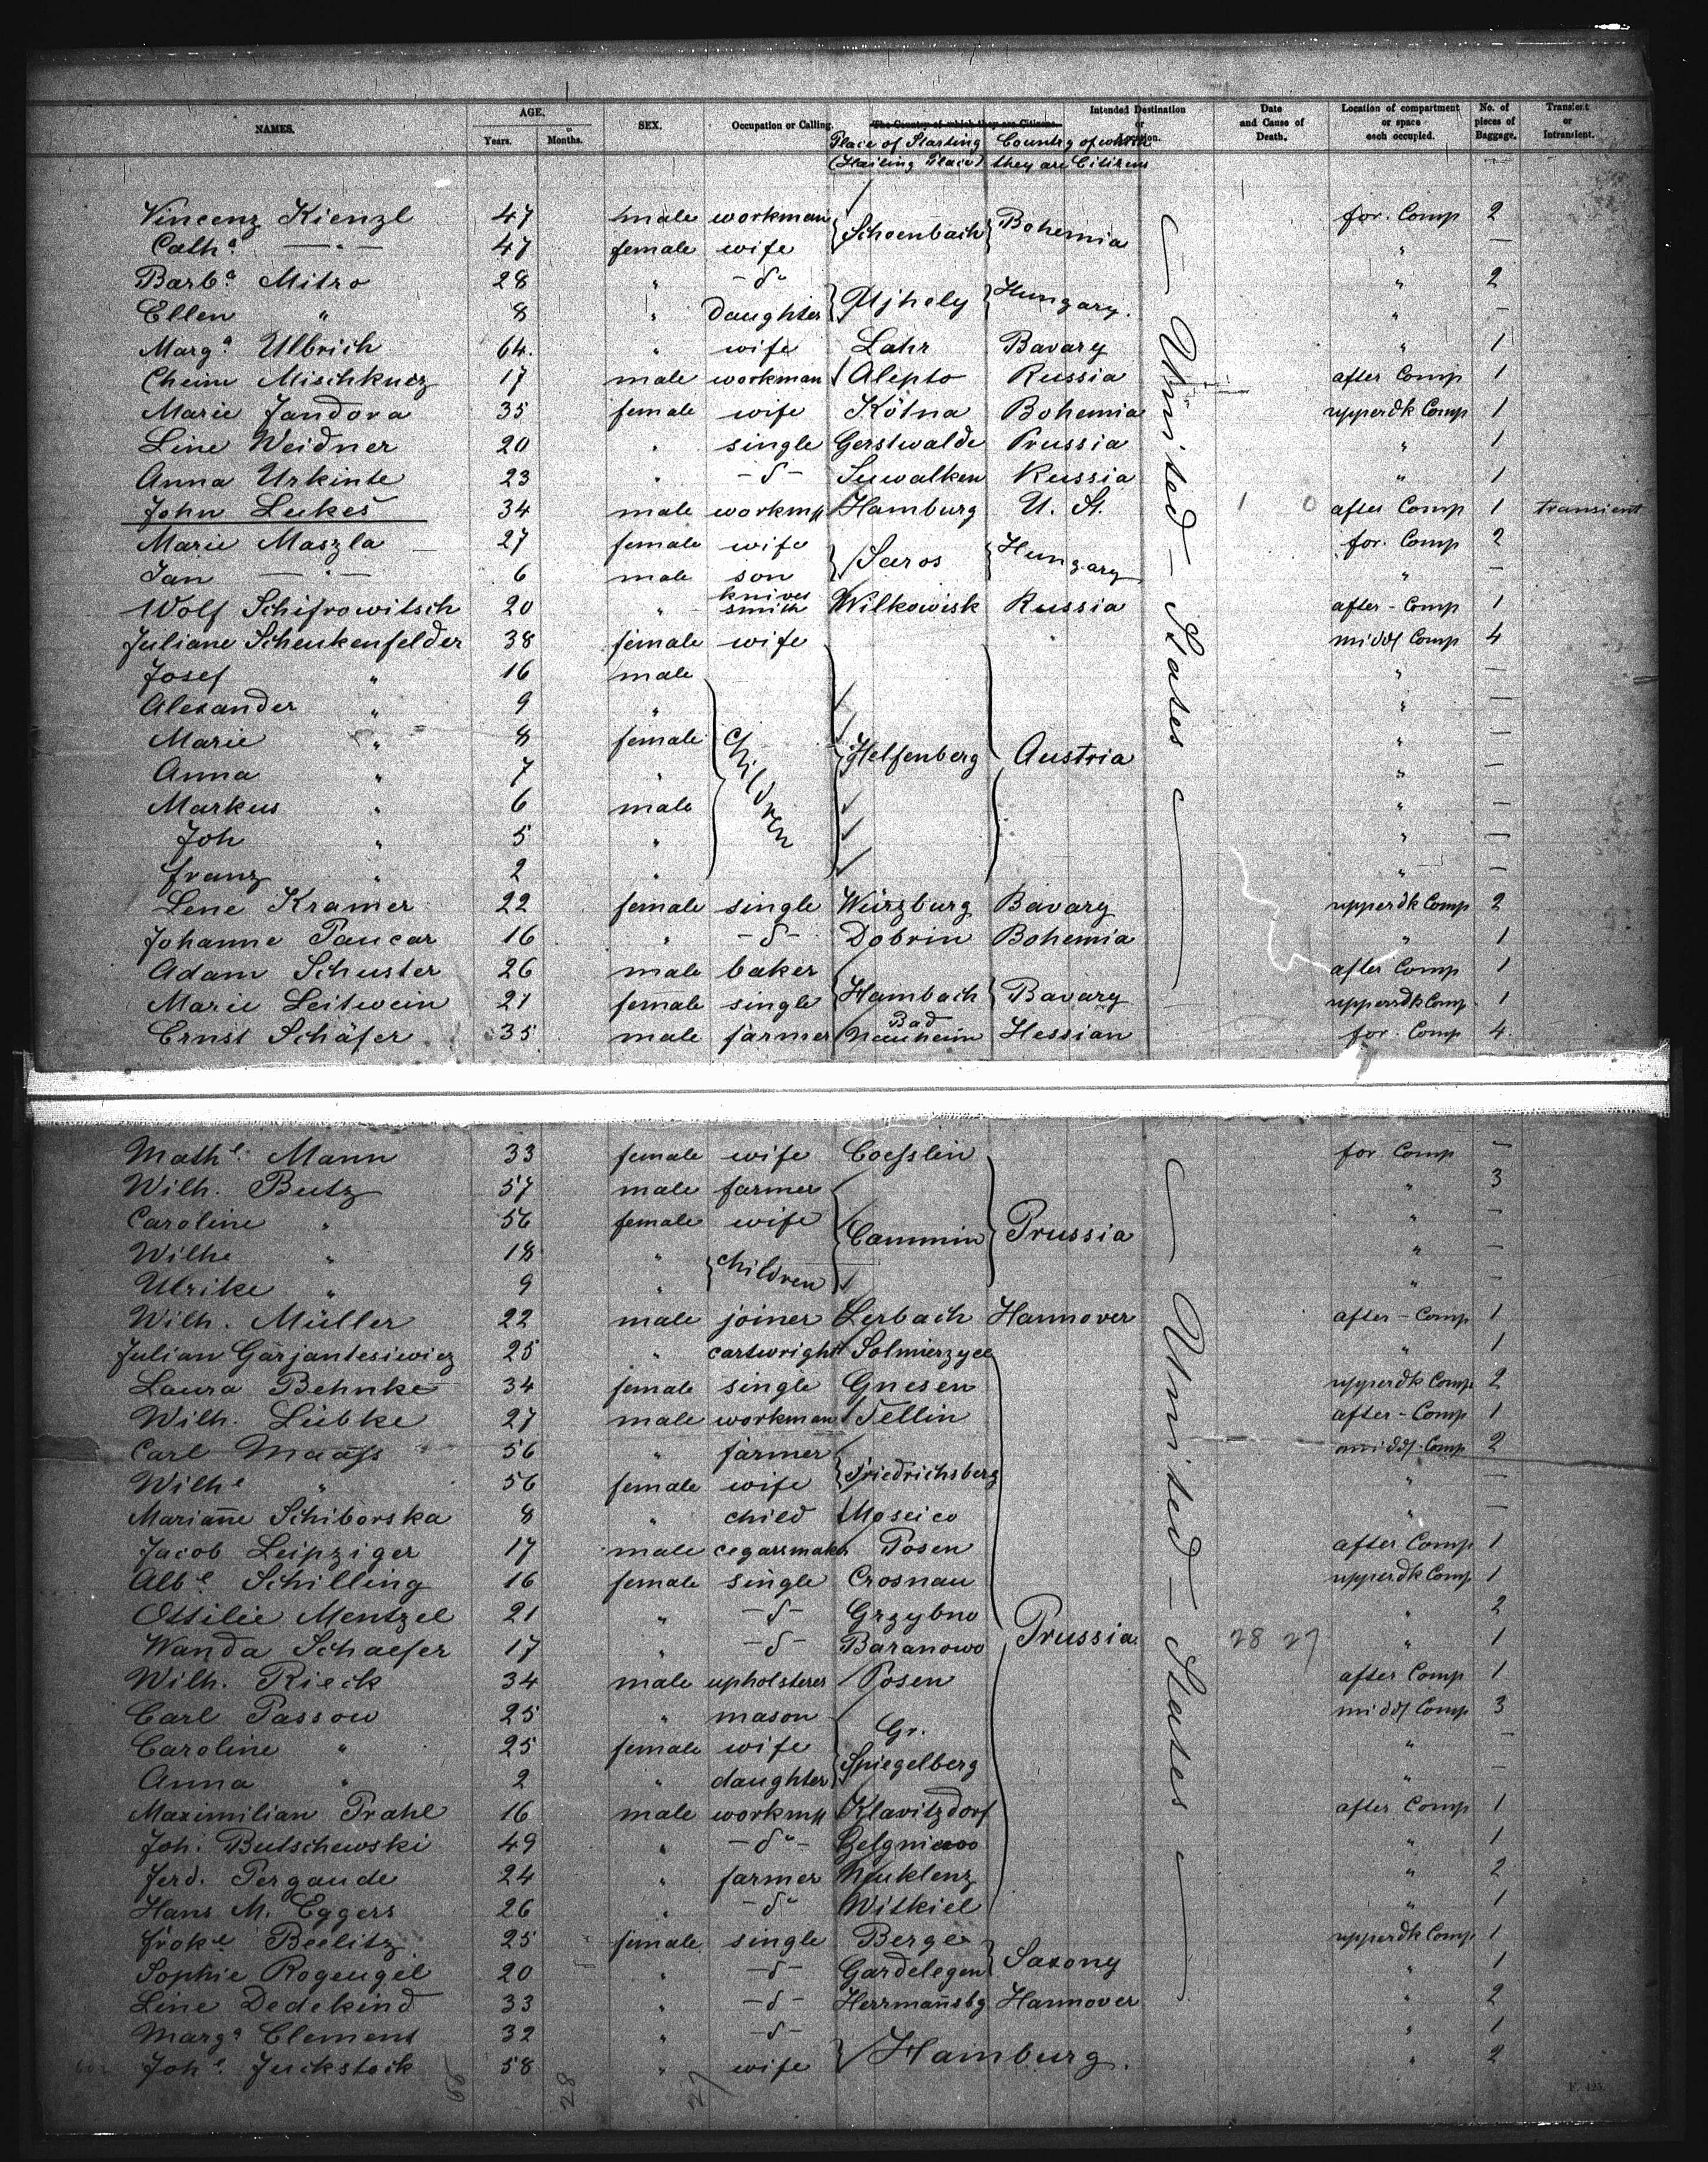 NAMES. AGE. SEX. Occupation or Calling. The Country of which they are Citizens. Intended Destination or Location. Date and Cause of Death. Location of compartment or space each occupied. No. of pieces of Baggage. Transient or Intransient.
Years. Months. Place of Starting Country of which
(Hailing Place) they are Citizens
Vincenz Kienzl 47 male workman Schoenbach Bohemia for. Comp 2
Cath.a — " — 47 female wife " —
Barb.a Mitro 28 " — do Ujhely Hungary. " 2
Ellen " 8 " daughter " —
Marg.a Ulbrich 64. " wife Lahr Bavary " 1
Cheim Mischkucz 17 male workman Alepto Russia after Comp 1
Marie Jandova 35 female wife Kötna Bohemia upperdk Comp 1
Line Weidner 20 " single Gerstwalde Prussia " 1
Anna Urkinte 23 " — d — Suwalken Russia " 1
John Lukes 34 male workmn Hamburg U. St. 1 0 after Comp 1 transient
Marie Maszla 27 female wife Saros Hungary for. Comp 2
Jan — " — 6 male son " —
Wolf Schifrowitsch 20 " knives smith Wilkowisk Russia after - Comp 1
Juliane Schenkenfelder 38 female wife middl Comp 4
Josef " 16 male " —
Alexander " 9 " " —
Marie " 8 female children Helfenberg Austria " —
Anna " 7 " " —
Markus " 6 male " —
Joh " 5 " " —
Franz " 2 " " —
Lene Kramer 22 female single Würzburg Bavary upperdk Comp 2
Johanne Paucar 16 " — d — Dobrin Bohemia " 1
Adam Schuster 26 male baker after Comp 1
Marie Leitwein 21 female single Hambach Bavary upperdk Comp 1
Ernst Schäfer 35 male farmer Bad Nauheim Hessian for. Comp 4
— United — States —
Math.e Mann 33 female wife Coesslin for Comp —
Wilh. Butz 57 male farmer " 3
Caroline " 56 female wife Cammin Prussia " —
Wilhe " 18 " children " —
Ulrike " 9 " " —
Wilh. Müller 22 male joiner Lerbach Hannover after - Comp 1
Julian Garjantesiewicz 25 " cartwright Solmierzyce " 1
Laura Behnke 34 female single Gnesen upperdk Comp 2
Wilh. Lübke 27 male workman Tellin after - Comp 1
Carl Maass 56 " farmer middl. Comp 2
Wilh.e " 56 female wife Friedrichsberg " —
Mariañe Schiborska 8 " child Moscico " —
Jacob Leipziger 17 male cegarrmaker Posen after Comp 1
Alb.e Schilling 16 female single Crosnau upperdk Comp 1
Ottilie Mentzel 21 " — d — Grzybno " 2
Wanda Schaefer 17 " — d — Baranowo Prussia 28 27 " 1
Wilh. Rieck 34 male upholsterer Posen after Comp 1
Carl Passow 25 " mason Gr. middl Comp 3
Caroline " 25 female wife Spiegelberg " —
Anna " 2 " daughter " —
Maximilian Prahl 16 male workmn Klavitzdorf after Comp 1
Joh. Butschewski 49 " — do — " 1
Ferd. Pergande 24 " farmer " 2
Hans M. Eggers 26 " do Witkiel " 1
Frok.e Beelitz 25 female single Berge Saxony upperdk Comp 1
Sophie Rogengel 20 " — d — Gardelegen " 1
Line Dedekind 33 " — d — Herrmañsbg Hannover " 2
Marg.a Clement 32 " — d — Hamburg. " 1
Joh.e Juckstock 58 " wife " 2
— United — States —
28 27